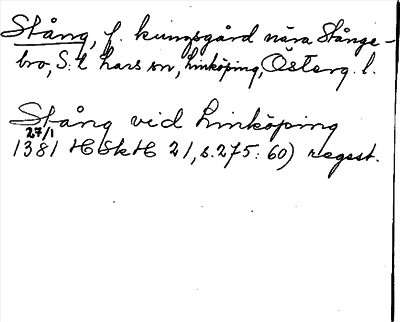 Stång, f. kungsgård nära Stånge-
bro, S:t Lars sn, Linköping, Österg. l.
Stång vid Linköping
27/1
1381 HSkH 21, s. 275: 60) regest.